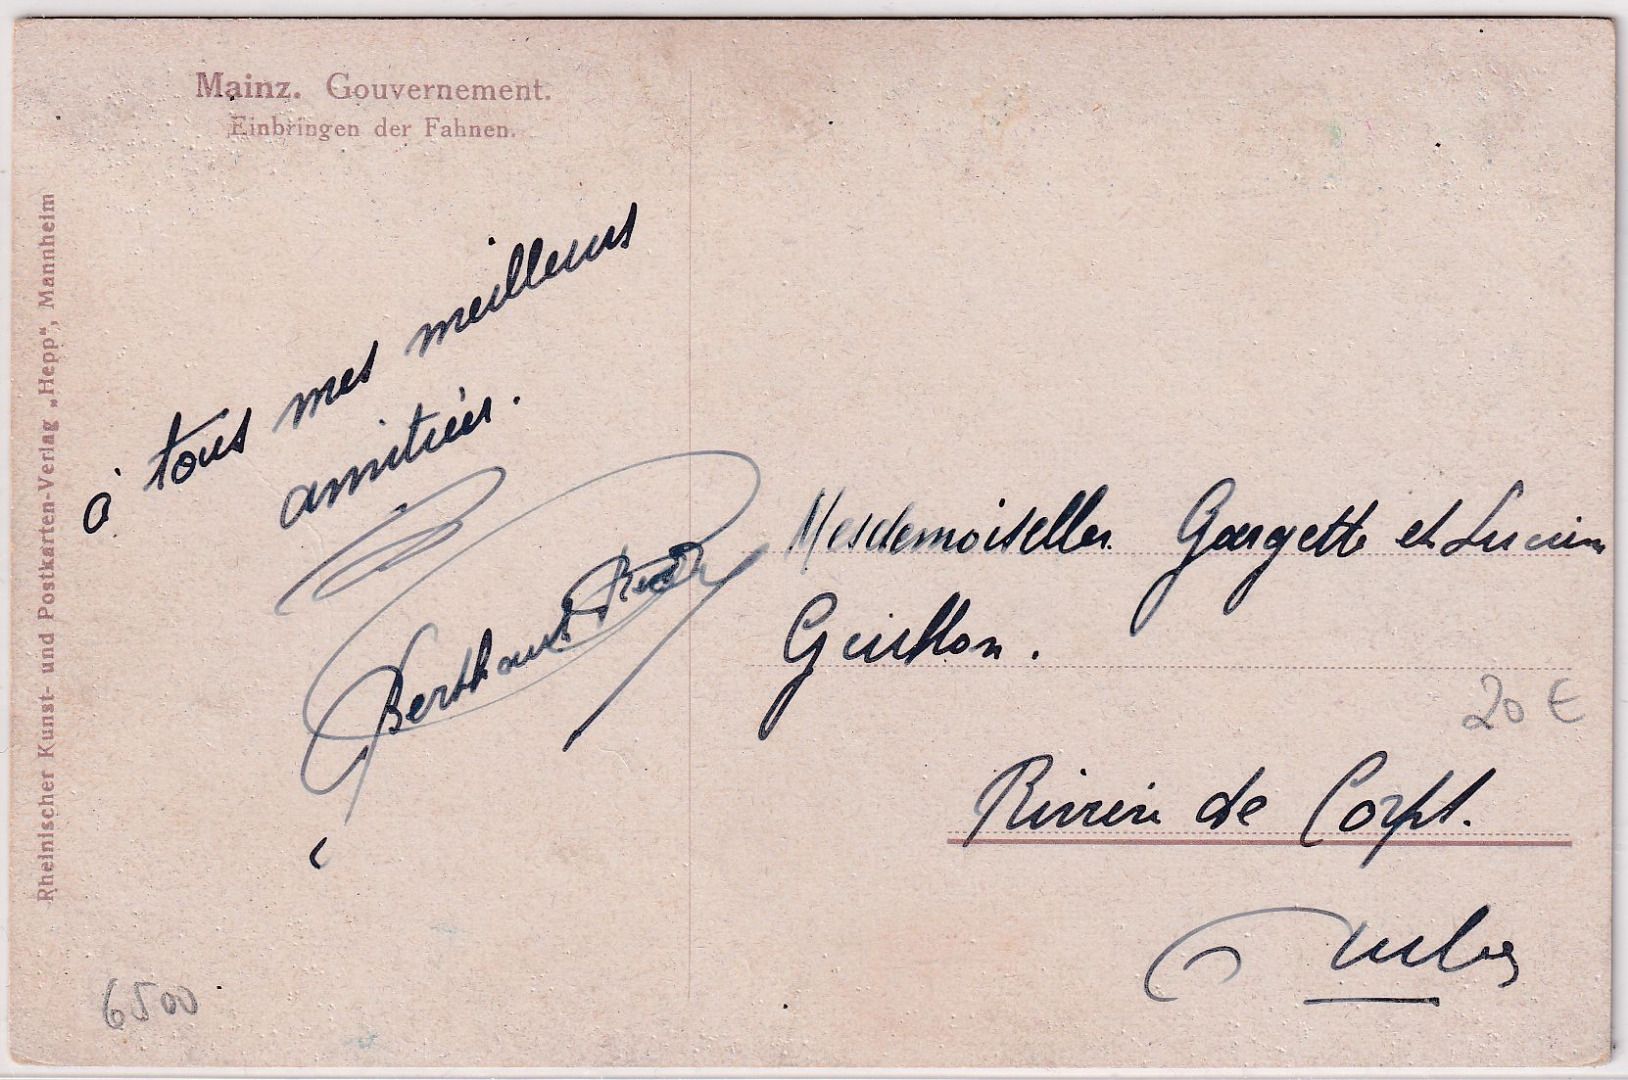 Mainz. Gouvernement.
Einbringen der Fahnen.
Rheinischer Kunst- und Postkarten-Verlag „Hepp“, Mannheim
à tous mes meilleurs
amitiés.
Berthaut
Mesdemoiselles Georgette et Lucienne
Guillon.
20 €
Rivière de Corps.
Aube
6500